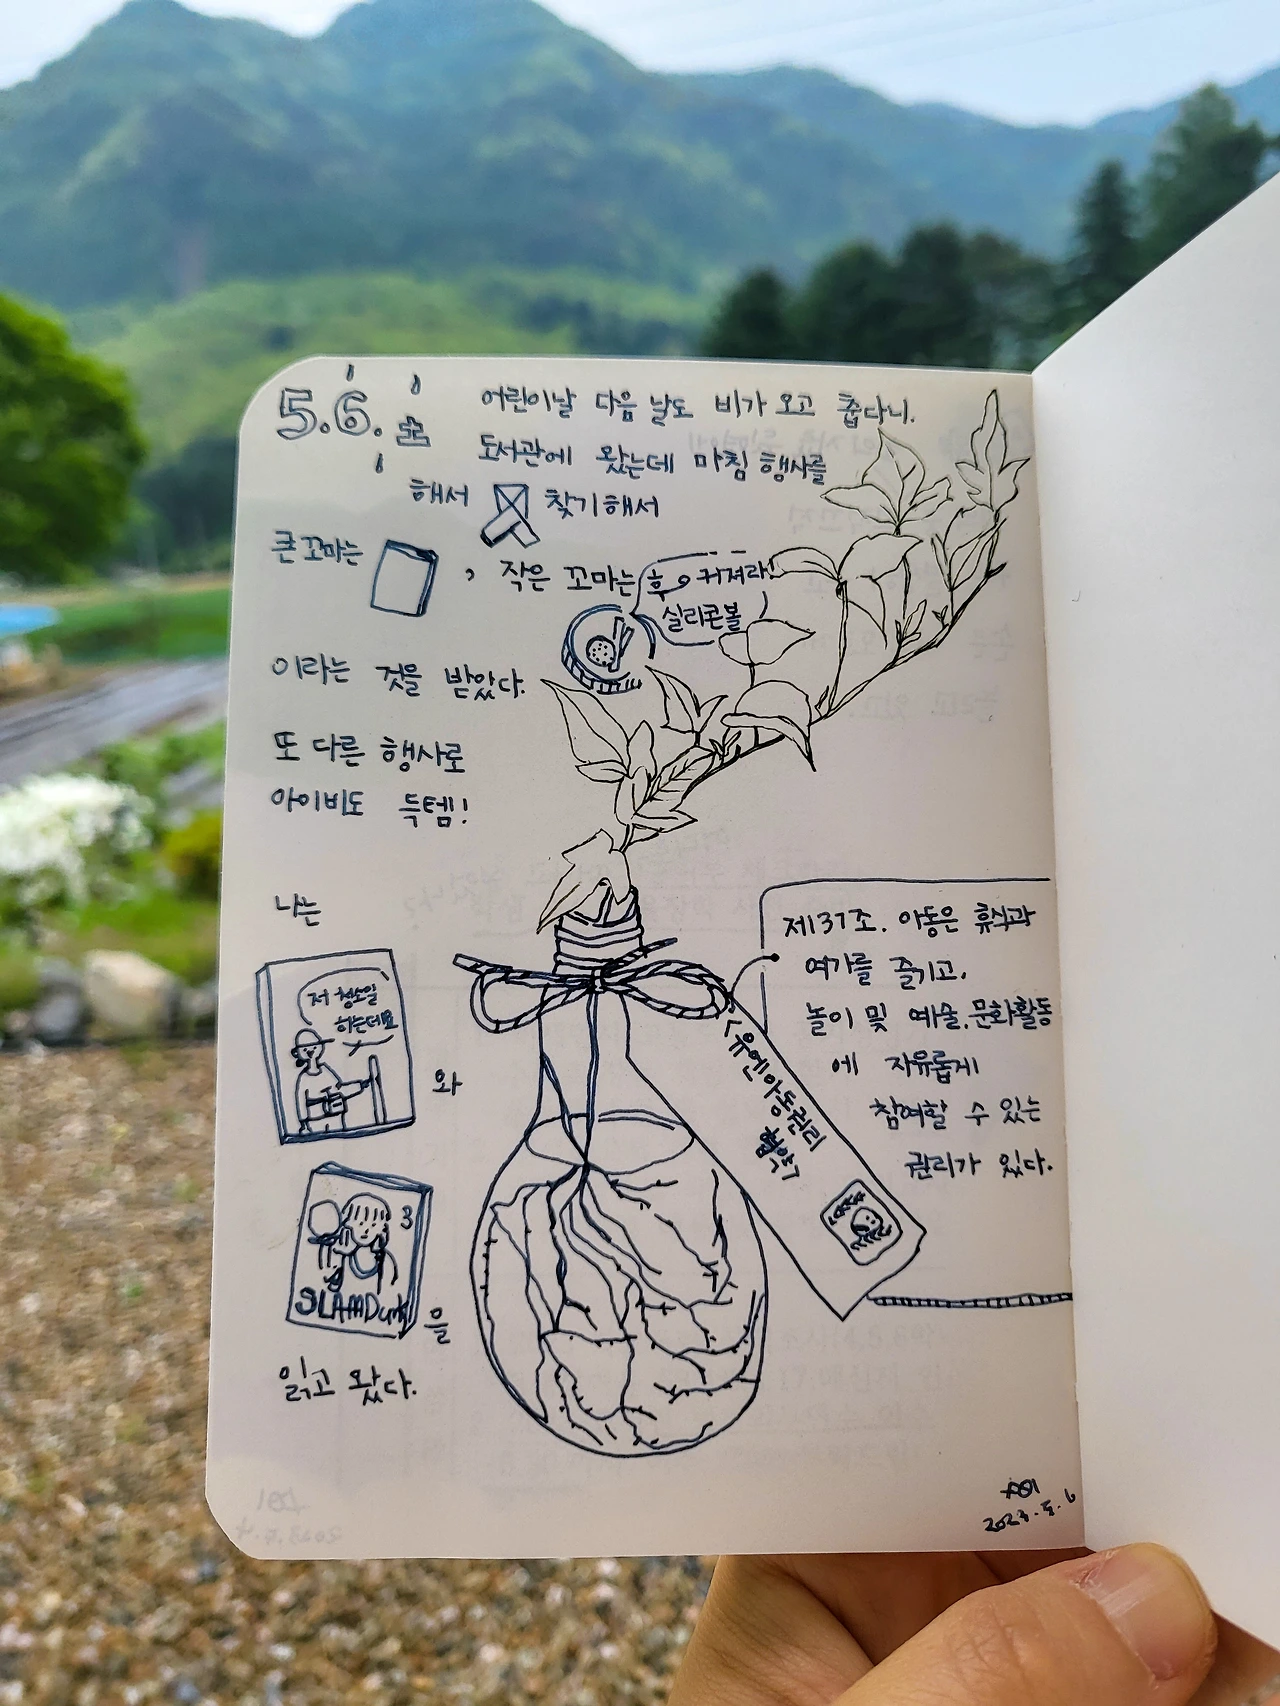 5.6.토
어린이날 다음 날도 비가 오고 춥다니.
도서관에 왔는데 마침 행사를
해서 찾기해서
큰 꼬마는 , 작은 꼬마는
후 커져라!
실리콘볼
이라는 것을 받았다.
또 다른 행사로
아이비도 득템!
나는
저 청소일
하는데요
와
3
SLAMDunk
을
읽고 왔다.
<유엔아동권리
협약>
제31조. 아동은 휴식과
여가를 즐기고,
놀이 및 예술.문화활동
에 자유롭게
참여할 수 있는
권리가 있다.
2023.5.6